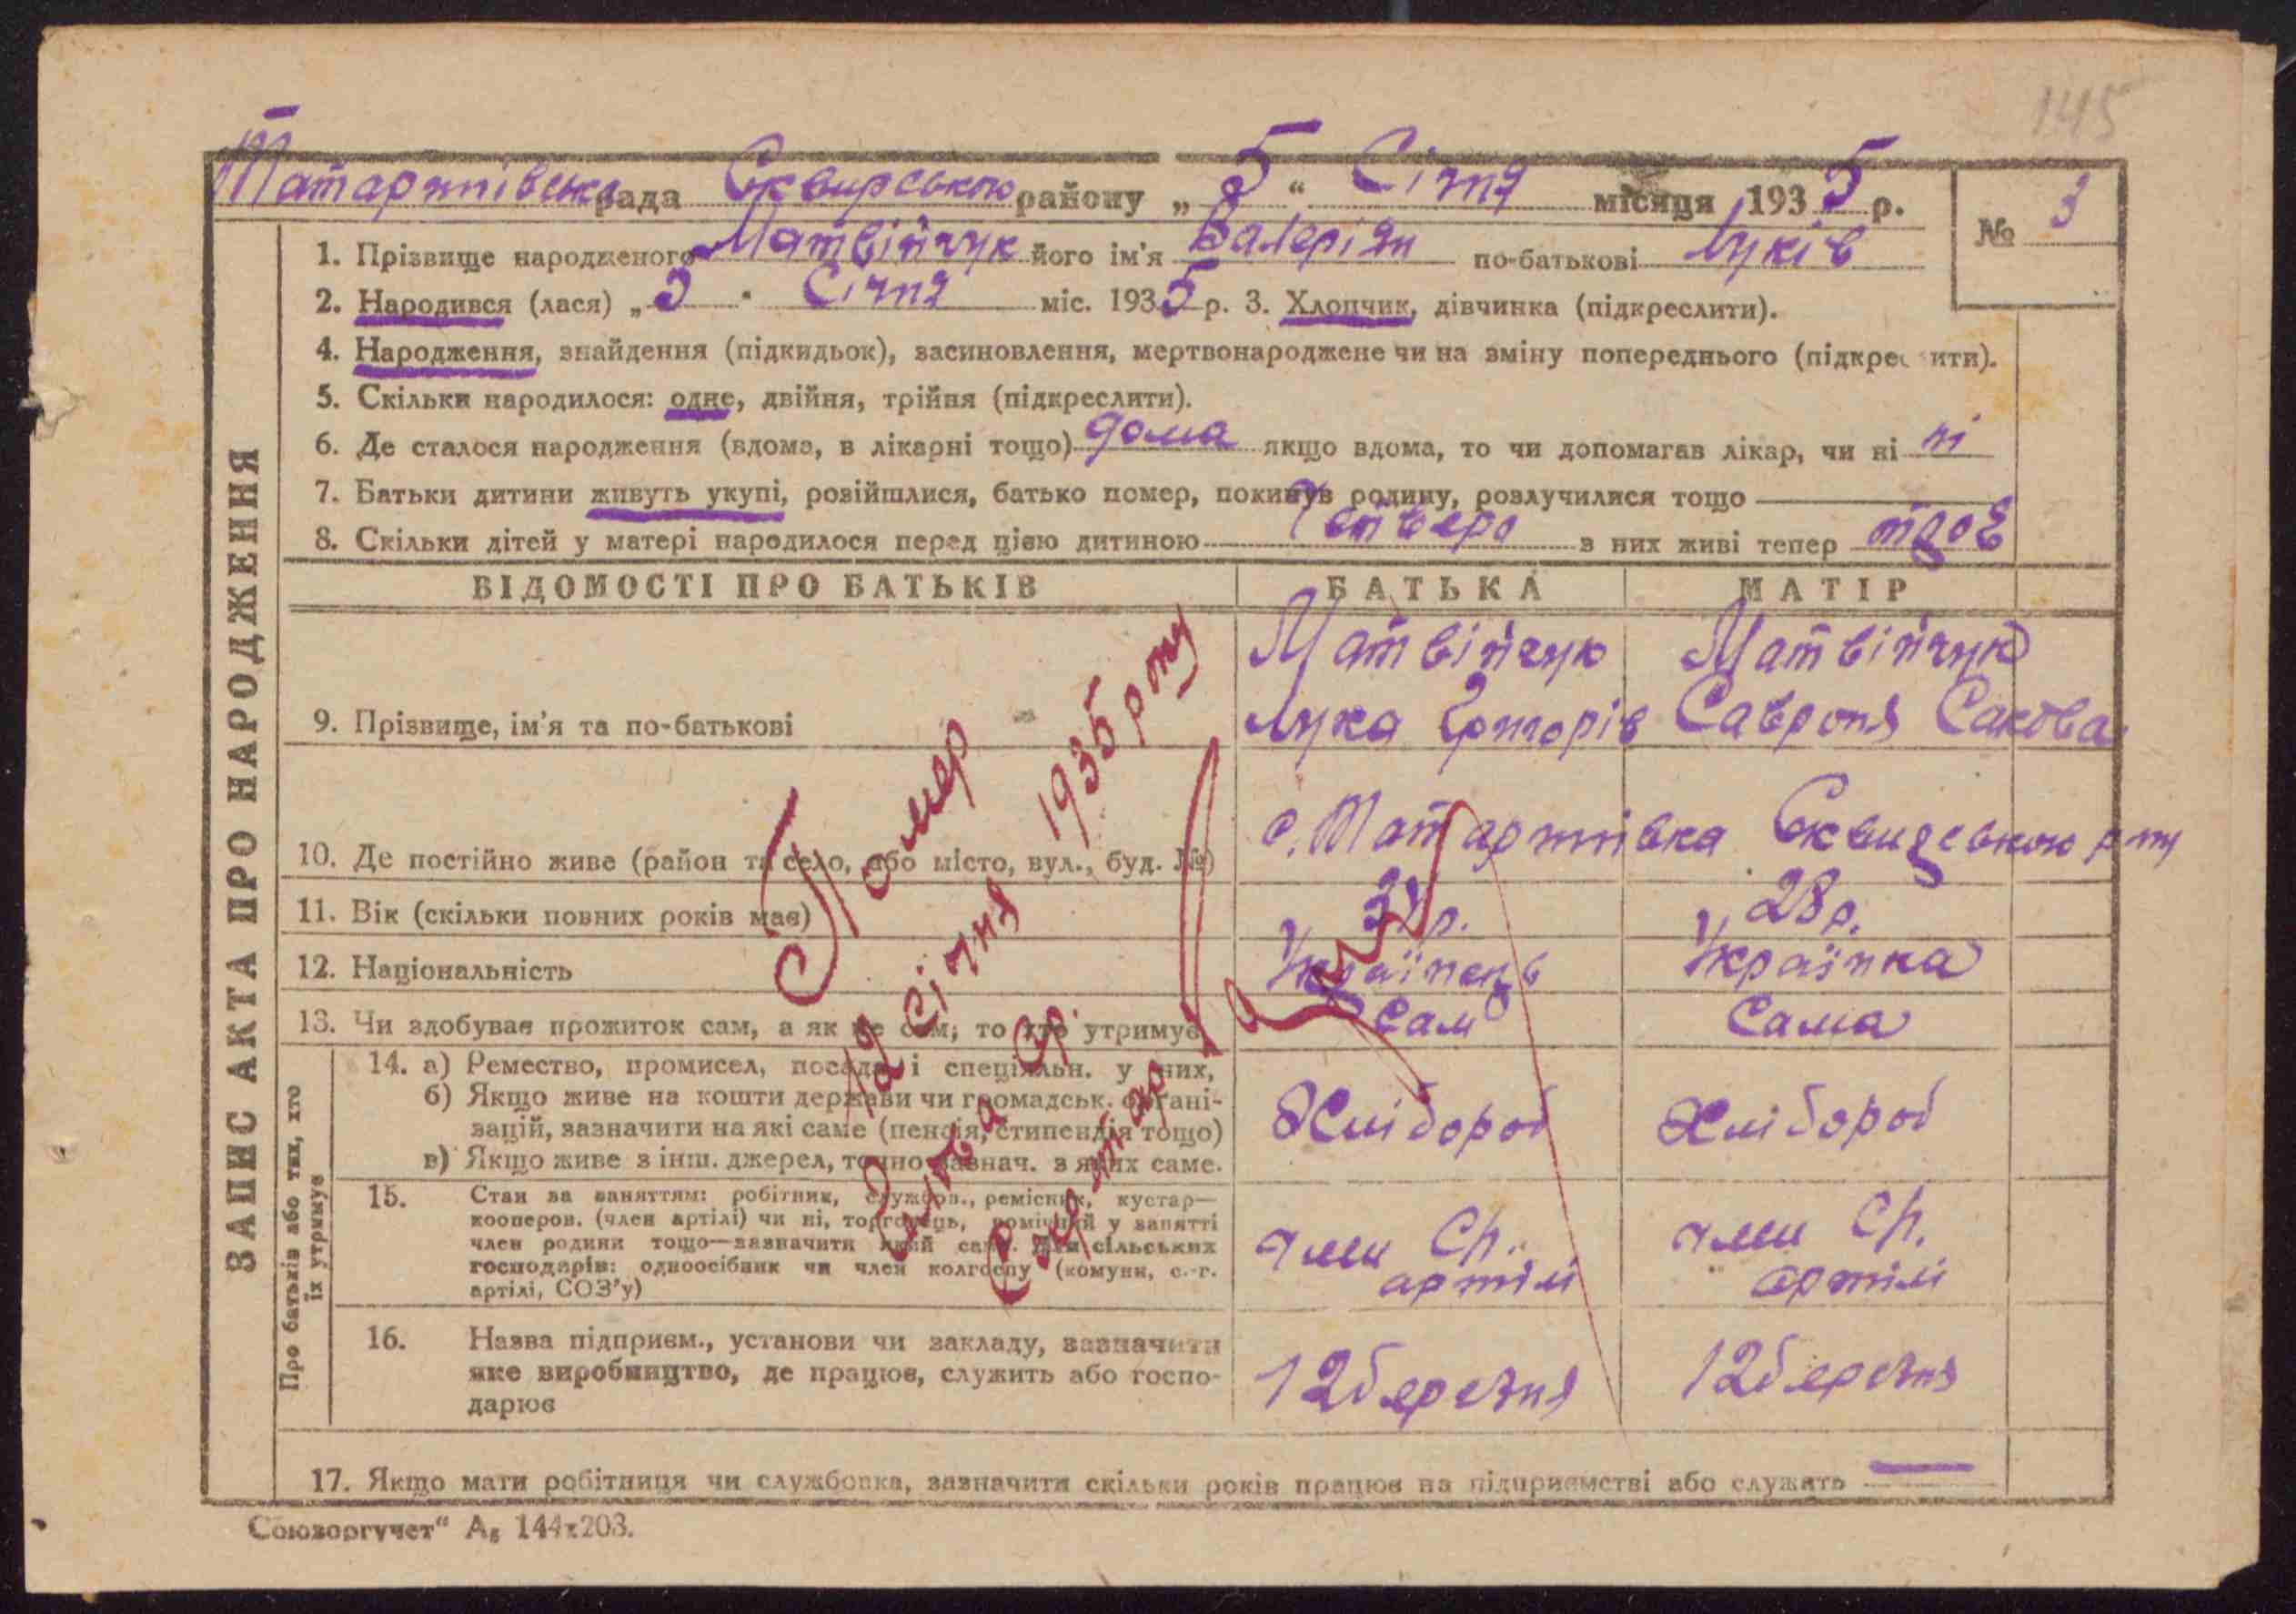 145
Татарнівська рада Сквирського району „5“ Січня місяця 1935 р.
№ 3
1. Прізвище народженого Матвійчук його ім'я Валеріян по-батькові Луків
2. Народився (лася) „3“ Січня міс. 1935 р. 3. Хлопчик, дівчинка (підкреслити).
4. Народження, знайдення (підкидьок), засиновлення, мертвонароджене чи на зміну попереднього (підкреслити).
5. Скільки народилося: одне, двійня, трійня (підкреслити).
6. Де сталося народження (вдома, в лікарні тощо) дома якщо вдома, то чи допомагав лікар, чи ні ні
7. Батьки дитини живуть укупі, розійшлися, батько помер, покинув родину, розлучилися тощо
8. Скільки дітей у матері народилося перед цією дитиною Четверо з них живі тепер
ЗАПИС АКТА ПРО НАРОДЖЕННЯ
ВІДОМОСТІ ПРО БАТЬКІВ БАТЬКА МАТІР
9. Прізвище, ім'я та по-батькові Матвійчук Лука Григорів Матвійчук Савроня Сакова
10. Де постійно живе (район та село, або місто, вул., буд. №) с. Сквирського р-ну
11. Вік (скільки повних років має) 28 р.
12. Національність Українець Українка
13. Чи здобував прожиток сам, а як не сам, то хто утримує Сам Сама
Про батьків або тих, хто їх утримує
14. а) Ремество, промисел, посада і спеціяльн. у них,
б) Якщо живе на кошти держави чи громадськ. органі-
зацій, зазначити на які саме (пенсія, стипендія тощо)
в) Якщо живе з інш. джерел, точно зазнач. з яких саме.
Хлібороб Хлібороб
15. Стан за заняттям: робітник, службов., ремісник, кустар—
кооперов. (член артілі) чи ні, торговець, помічний у занятті
член родини тощо—зазначити який саме. Для сільських
господарів: одноосібник чи член колгоспу (комуни, с.-г.
артілі, СОЗ'у)
член Ср. артілі член Ср. артілі
16. Назва підприєм., установи чи закладу, зазначити
яке виробництво, де працює, служить або госпо-
дарює
12 березня 12 березня
17. Якщо мати робітниця чи службовка, зазначити скільки років працює на підприємстві або служить —
Помер
19 Січня 1935 року
Секретар
Союзоргучет“ А₅ 144х203.